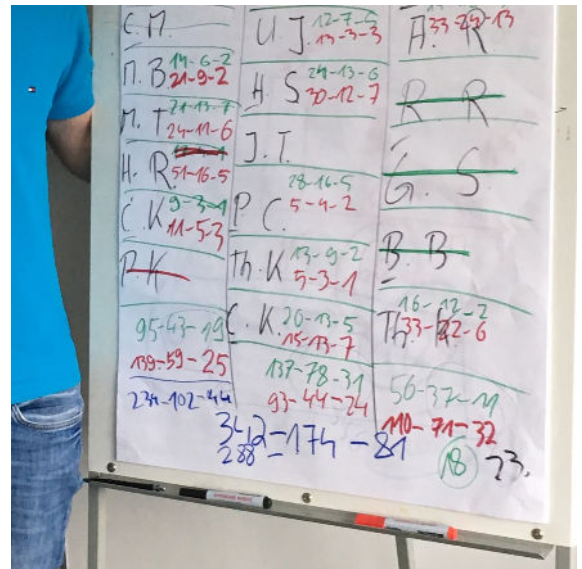 C. M.
M. B. 14-6-2
21-9-2
M. T. 21-13-7
24-11-6
H. R.
51-16-5
C. K. 9-3-1
11-5-3
P. K
95-43-19
139-59-25
234-102-44
U. J. 12-7-5
13-3-3
H. S 24-13-6
30-12-7
J. T.
28-16-5
P. C. 5-4-2
Th. K 13-9-2
5-3-1
C. K. 20-13-5
15-13-7
137-78-31
93-44-24
A. R. 33-24-13
R R
G. S.
B. B
16-12-2
Th. R. 33-22-6
56-37-11
110-71-32
342-174-81
288
18 23.